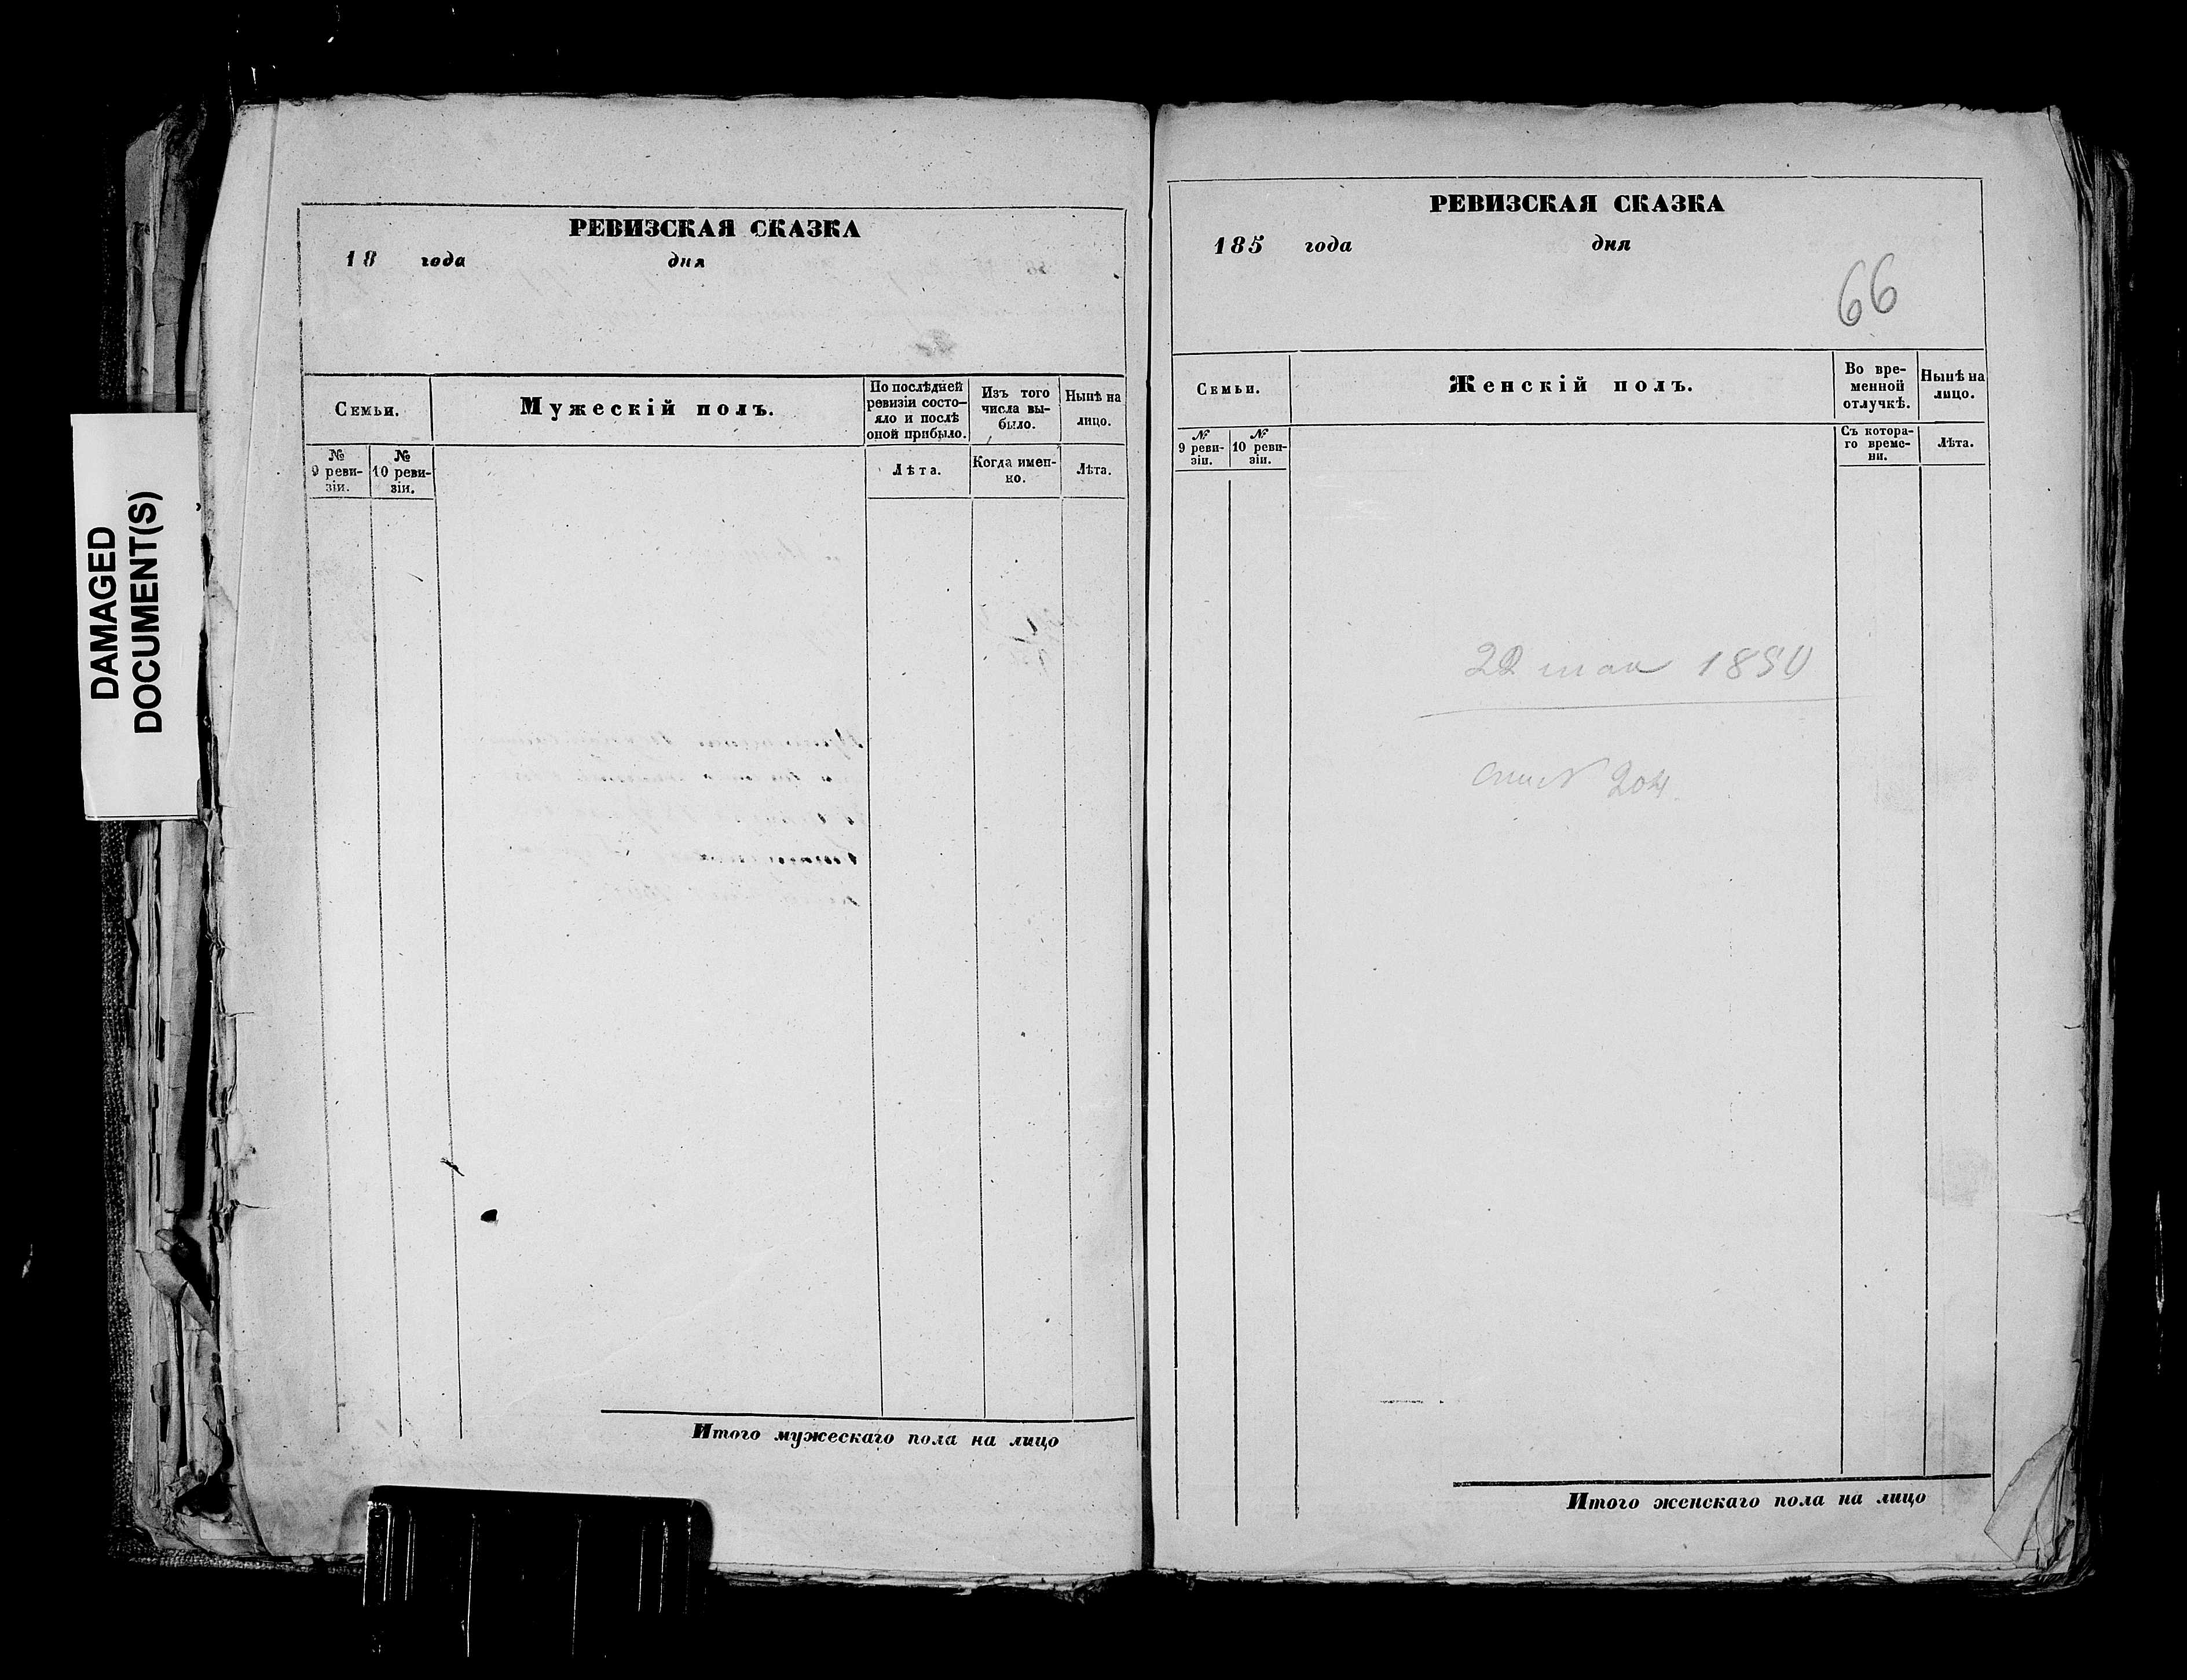 DAMAGED
DOCUMENT(S)
РЕВИЗСКАЯ СКАЗКА
18 года дня
Семьи.
Мужескій полъ.
По послѣдней
ревизіи состо-
яло и послѣ
оной прибыло.
Изъ того
числа вы-
было.
Нынѣ на
лицо.
№
9 реви-
зіи.
№
10 реви-
зіи.
Лѣта.
Когда имен-
но.
Лѣта.
Итого мужескаго пола на лицо
РЕВИЗСКАЯ СКАЗКА
185 года дня
66
Семьи.
Женскій полъ.
Во вре-
менной
отлучкѣ.
Нынѣ на
лицо.
№
9 реви-
зіи.
№
10 реви-
зіи.
Съ котора-
го време-
ни.
Лѣта.
22 мая 1850
204
Итого женскаго пола на лицо